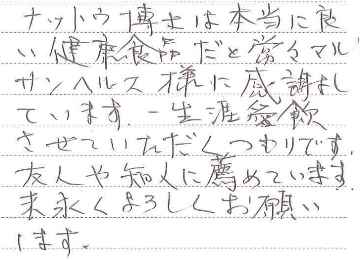 ナットウ博士は本当に良
い健康食品だと常々マル
サンヘルス様に感謝し
ています。一生涯愛飲
させていただくつもりです。
友人や知人に薦めています。
末永くよろしくお願い
します。